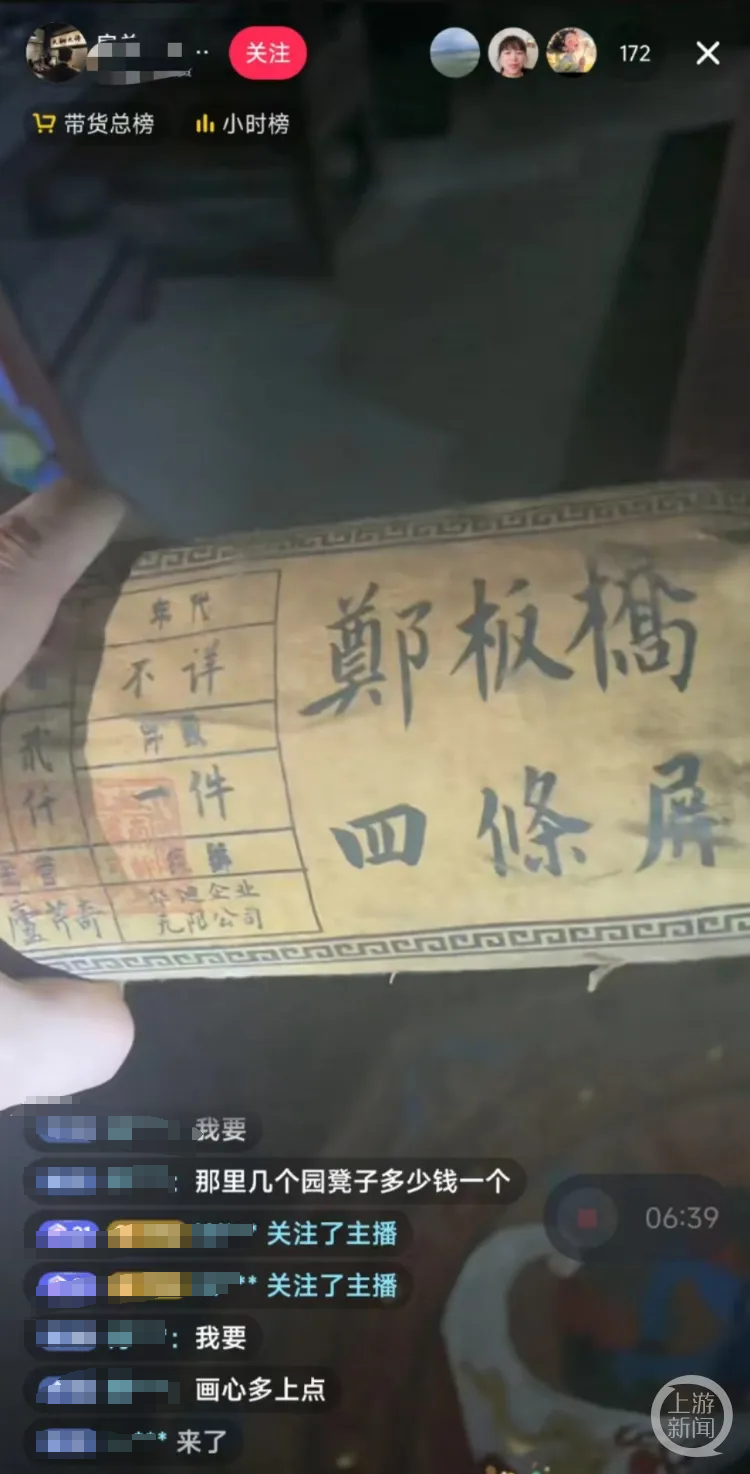 关注
172
带货总榜
小时榜
鄭板橋
四條屏
年代
不详
一件
华迪企业
无限公司
贰
仟
我要
那里几个园凳子多少钱一个
关注了主播
关注了主播
我要
画心多上点
来了
06:39
上游
新闻